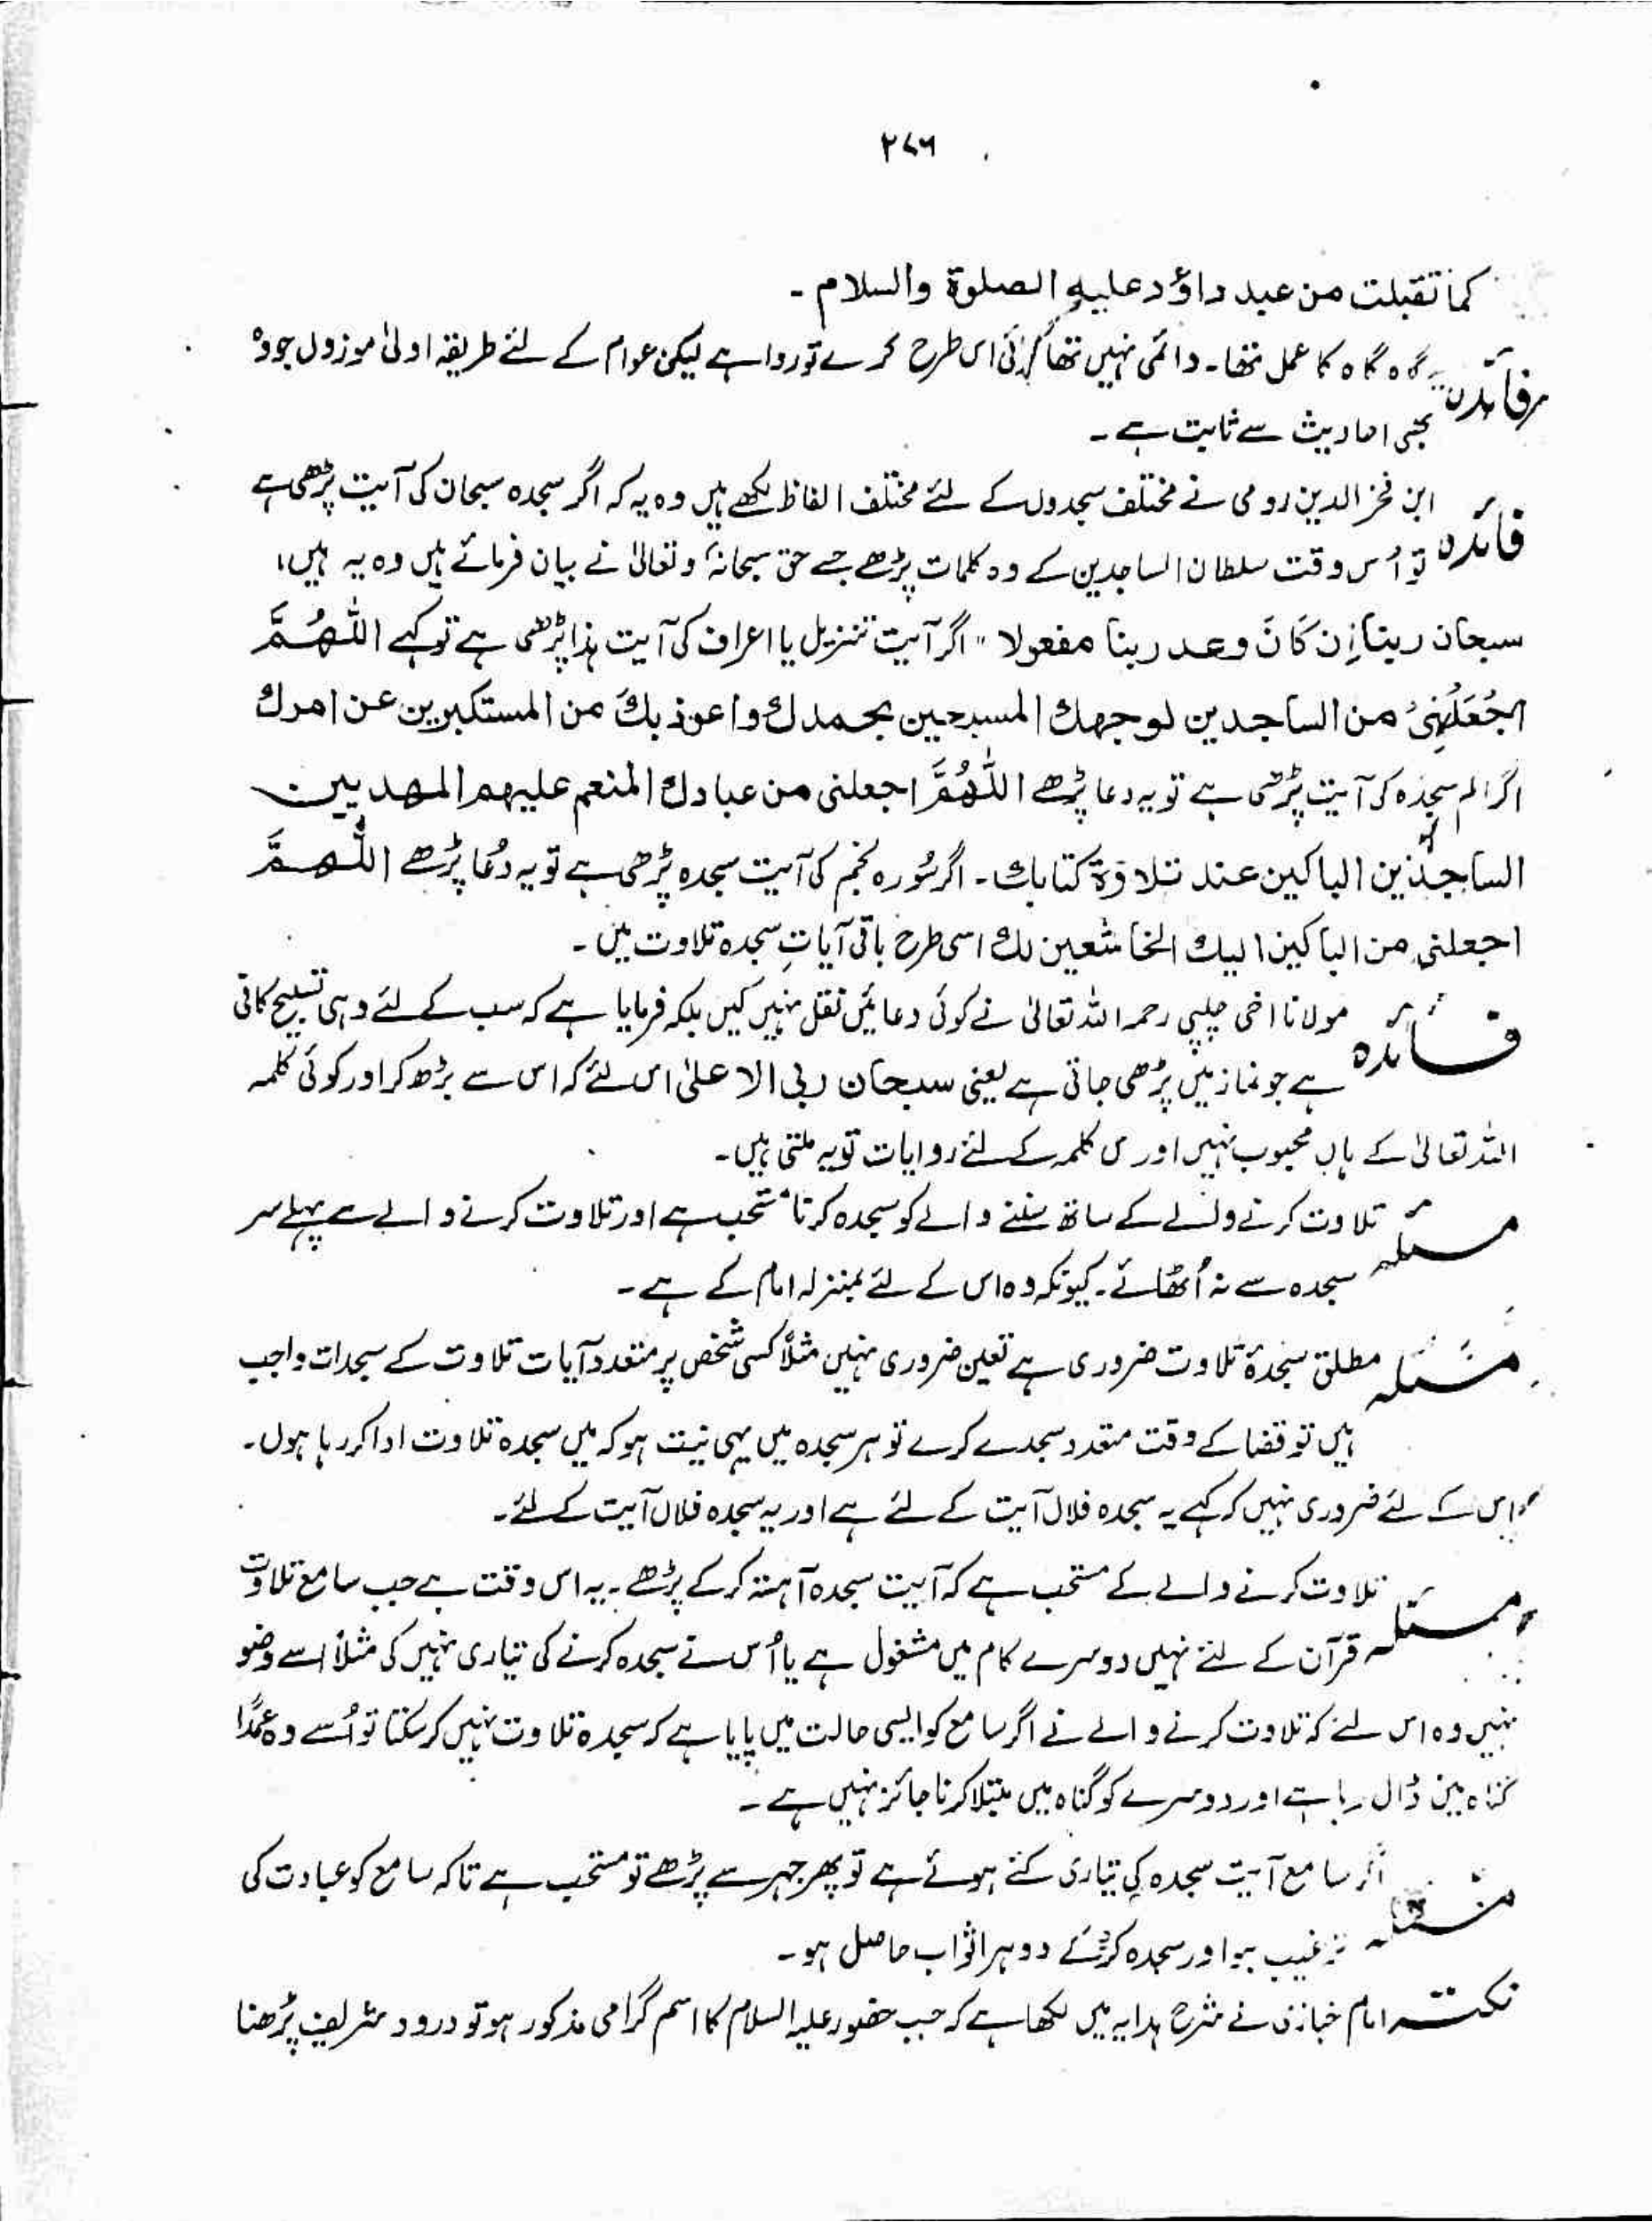 ۲۷۶
کما تقبلت من عبد داؤد علیہ الصلوۃ والسلام ۔
فائدہ یہ گاہ گاہ کا عمل تھا۔ دائمی نہیں تھا کوئی اس طرح کرے تو روا ہے لیکن عوام کے لئے طریقہ اولیٰ موزوں جو وہ
بھی احادیث سے ثابت ہے ۔
فائدہ ابن فخر الدین رومی نے مختلف سجدوں کے لئے مختلف الفاظ لکھے ہیں وہ یہ کہ اگر سجدہ سبحان کی آیت پڑھی ہے
تو اُس وقت سلطان الساجدین کے وہ کلمات پڑھے جسے حق سبحانہٗ و تعالیٰ نے بیان فرمائے ہیں وہ یہ ہیں،
سبحان ربنا اِن کَانَ وعد ربنا مفعولا " اگر آیت تنزیل یا اعراف کی آیت ہذا پڑھی ہے تو کہے اللّٰھُمَّ
اجْعَلْنِیْ من الساجدین لوجھك المسبحین بحمدك واعوذ بك من المستکبرین عن امرك
اگر الم سجدہ کی آیت پڑھی ہے تو یہ دعا پڑھے اللّٰھُمَّ اجعلنی من عبادك المنعم علیھم المھدیین
الساجدین الباکین عند تلاوۃ کتابك ۔ اگر سُورہ نجم کی آیت سجدہ پڑھی ہے تو یہ دُعا پڑھے اللّٰھمَّ
اجعلنی من الباکین الیك الخاشعین لك اسی طرح باقی آیاتِ سجدہ تلاوت میں ۔
فائدہ مولانا اخی چلپی رحمہ اللہ تعالیٰ نے کوئی دعائیں نقل نہیں کیں بلکہ فرمایا ہے کہ سب کے لئے وہی تسبیح کافی
ہے جو نماز میں پڑھی جاتی ہے یعنی سبحان ربی الاعلیٰ اس لئے کہ اس سے بڑھ کر اور کوئی کلمہ
اللہ تعالیٰ کے ہاں محبوب نہیں اور س کلمہ کے لئے روایات تو یہ ملتی ہیں۔
مسئلہ تلاوت کرنے والے کے ساتھ سننے والے کو سجدہ کرنا مستحب ہے اور تلاوت کرنے والے سے پہلے سر
سجدہ سے نہ اُٹھائے۔ کیونکہ وہ اس کے لئے بمنزلہ امام کے ہے ۔
مسئلہ مطلق سجدۂ تلاوت ضروری ہے تعین ضروری نہیں مثلاً کسی شخص پر متعدد آیات تلاوت کے سجدات واجب
ہیں تو قضا کے وقت متعدد سجدے کرے تو ہر سجدہ میں یہی نیت ہو کہ میں سجدہ تلاوت ادا کر رہا ہوں۔
اس کے لئے ضروری نہیں کہ کہے یہ سجدہ فلاں آیت کے لئے ہے اور یہ سجدہ فلاں آیت کے لئے۔
مسئلہ تلاوت کرنے والے کے مستحب ہے کہ آیت سجدہ آہستہ کر کے پڑھے ۔ یہ اس وقت ہے جب سامع تلاوت
قرآن کے لئے نہیں دوسرے کام میں مشغول ہے یا اُس نے سجدہ کرنے کی تیاری نہیں کی مثلاً اسے وضو
نہیں وہ اس لئے کہ تلاوت کرنے والے نے اگر سامع کو ایسی حالت میں پایا ہے کہ سجدۂ تلاوت نہیں کر سکتا تو اُسے وہ عمداً
گناہ میں ڈال رہا ہے اور دوسرے کو گناہ میں مبتلا کرنا جائز نہیں ہے ۔
مسئلہ اگر سامع آیت سجدہ کی تیاری کئے ہوئے ہے تو پھر جہر سے پڑھے تو مستحب ہے تاکہ سامع کو عبادت کی
ترغیب ہو اور سجدہ کرکے دوہرا ثواب حاصل ہو ۔
نکتہ امام خبازی نے شرح ہدایہ میں لکھا ہے کہ جب حضور علیہ السلام کا اسم گرامی مذکور ہو تو درود شریف پڑھنا